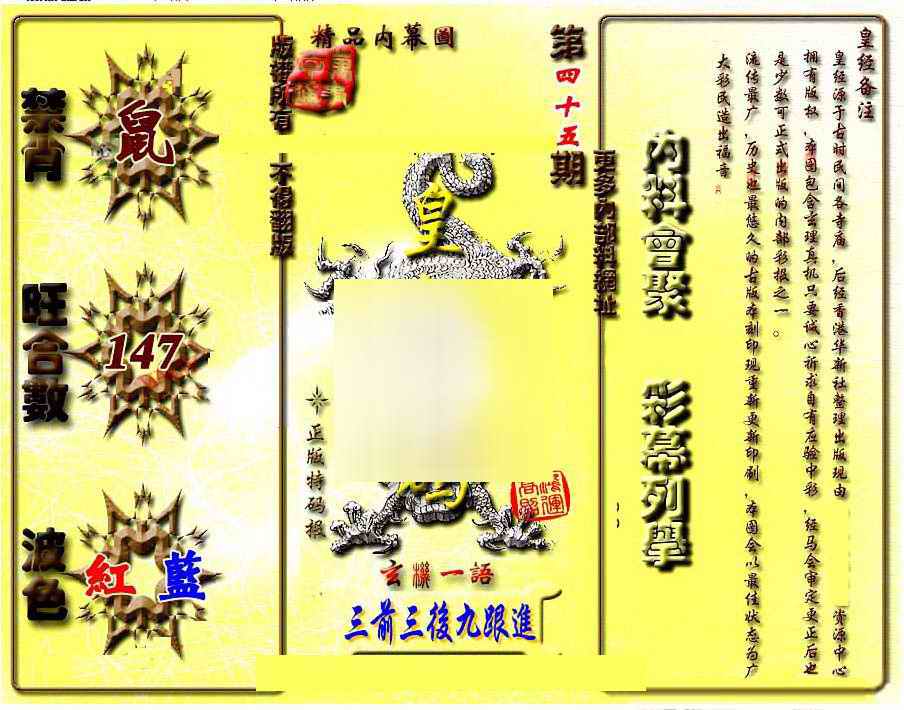 精品内幕圖
第四十五期
版權所有
不得翻版
更多內部料網址
禁肖
鼠
旺合數
147
波色
紅 藍
皇
正版特码报
鴻運
玄機一語
三前三後九跟進
內料會聚
彩幕列舉
皇经备注
皇经源于古时民间各寺庙，后经香港华新社整理出版现由 资源中心
拥有版权，本图包含玄理真机只要诚心祈求自有应验中彩，经马会审定更正后也
是少数可正式出版的内部彩报之一。
流传最广，历史也最悠久的古版本刻印现重新更新印刷，本图会以最佳状态为广
大彩民造出福音